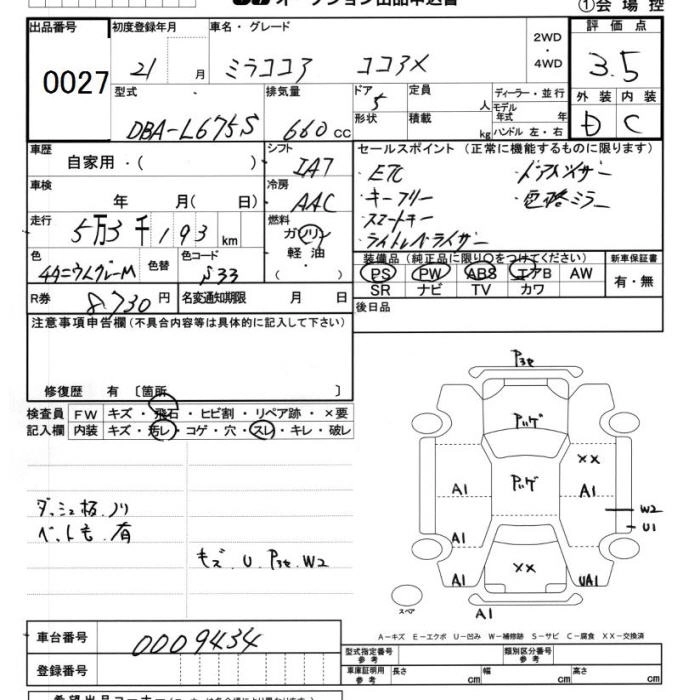 オークション出品申込書
①会場控
出品番号 0027
初度登録年月 21 月
車名・グレード ミラココア ココアX
2WD・4WD
評価点 3.5
型式 DBA-L675S
排気量 660 cc
ドア 5
形状
定員 人
積載 kg
ディーラー・並行
モデル年式 年
ハンドル 左・右
外装 D
内装 C
車歴 自家用・( )
シフト IA7
セールスポイント (正常に機能するものに限ります)
・ETC
・キーフリー
・スマートキー
・ライトレベライザー
・ドアバイザー
・電格ミラー
車検 年 月( 日)
冷房 AAC
走行 5万3千193 km
燃料 ガソリン・軽油・( )
色 色替
色コード S33
装備品 (純正品に限り○をつけてください)
PS PW ABS エアB AW
SR ナビ TV カワ
新車保証書 有・無
R券 8,730 円
名変通知期限 月 日
後日品
注意事項申告欄 (不具合内容等は具体的に記入して下さい)
修復歴 有 〔箇所 〕
検査員記入欄
FW キズ・飛石・ヒビ割・リペア跡・×要
内装 キズ・汚レ・コゲ・穴・スレ・キレ・破レ
ダッシュ板、ノリ
ペット毛、有
キズ、U、Pヨセ、W2
Pヨセ
アッゲ
XX
A1
アッゲ
A1
W2
U1
A1
A1
XX
UA1
スペア
A1
A-キズ E-エクボ U-凹み W-補修跡 S-サビ C-腐食 XX-交換済
車台番号 0009434
登録番号
型式指定番号 参考
類別区分番号 参考
車庫証明用 参考 長さ cm 幅 cm 高さ cm